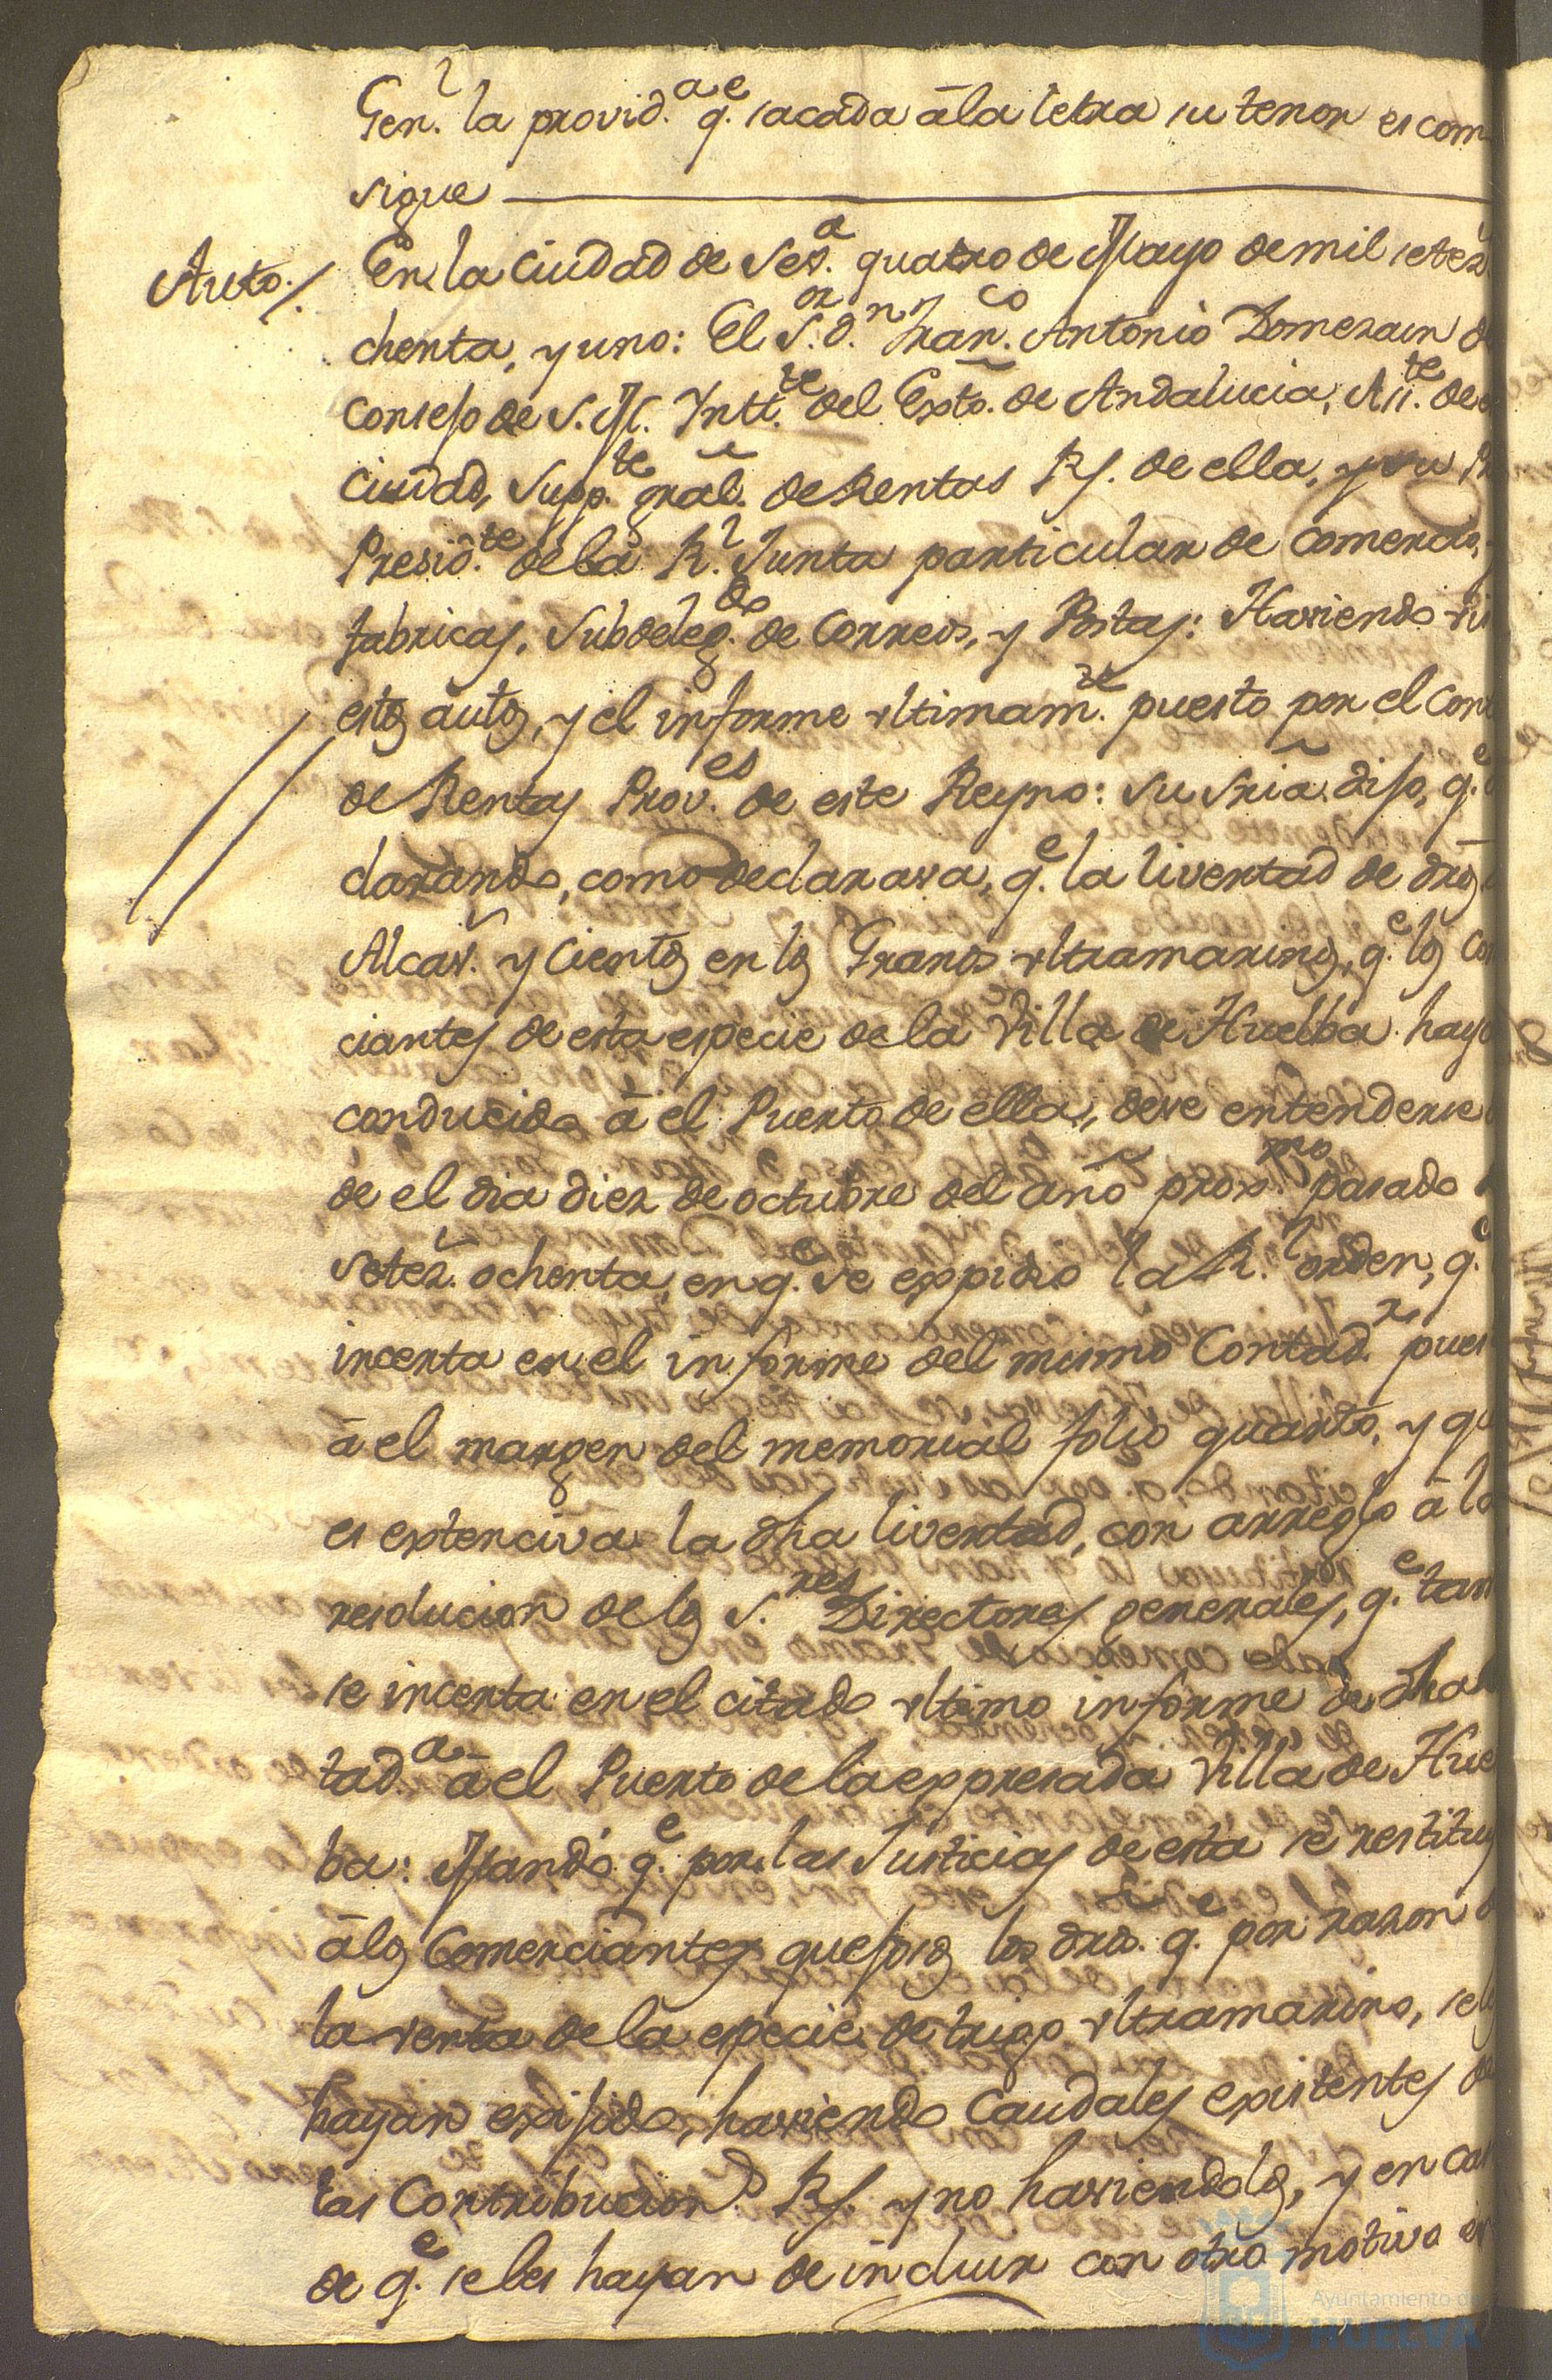 Gen.l la provid.a q.e sacada â la letra su tenor es com
sigue
Auto. / En la Ciudad de Sev.a quatro de Mayo de mil setez
chenta, y uno: El S.or d.n Fran.co Antonio Domezain d
Consejo de S. M. Intt.te del Exto. de Andalucia, Asi.te de
Ciudad, Supp.te gral. de Rentas Rs. de ella, y su
Presid.te de la R.l Junta particular de Comercio,
fabricas, Subdeleg.do de Correos, y Postas: Haviendo vi
estos autos, y el informe vltimam.te puesto por el Con
de Rentas Prov.es de este Reyno: su sria. dijo, q.e
clarando, como declarava, q.e la livertad de dros
Alcav. y Cientos en los Granos vltramarinos, q.e los Co
ciantes de esta especie de la Villa de Huelba hay
conducido â el Puerto de ella, deve entenderse
de el dia diez de octubre del año prox.mo pasado
setez. ochenta, en q.e se expidio la R.l orden, q.e
incerta en el informe del mismo Contad.r pues
â el margen del memorial folio quarto, y qu
es extenciva la dha livertad, con arreglo â la
resolucion de los S.res Directores generales, q.e tan
se incerta en el citado vltimo informe de dha
tad.a â el Puerto de la expresada Villa de Hue
ba: Mandó q.e por las Justicias de esta se restituy
â los Comerciantes quejosos los dros. q.e por razon
la venta de la especie de trigo vltramarino, se
hayan exijido, haviendo Caudales existentes de
las Contribucion.s Rs. y no haviendolos, y en cas
de q.e se les hayan de incluir con otro motivo en
Ayuntamiento de
HUELVA